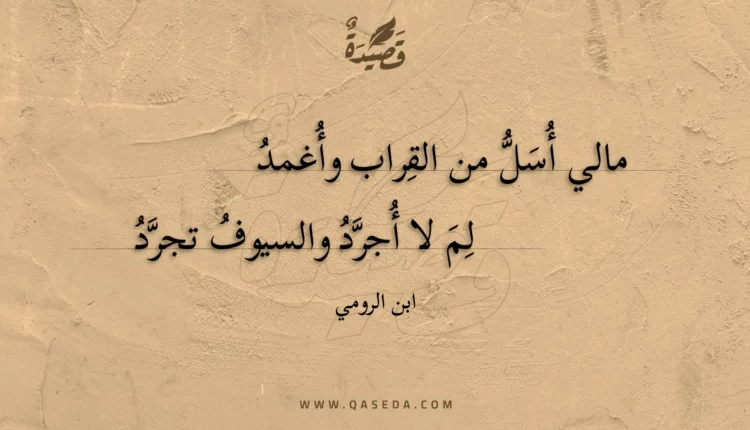 قَصِيدَةٌ
مالي أُسَلُّ من القِراب وأُغمدُ
لِمَ لا أُجرَّدُ والسيوفُ تجرَّدُ
ابن الرومي
WWW.QASEDA.COM